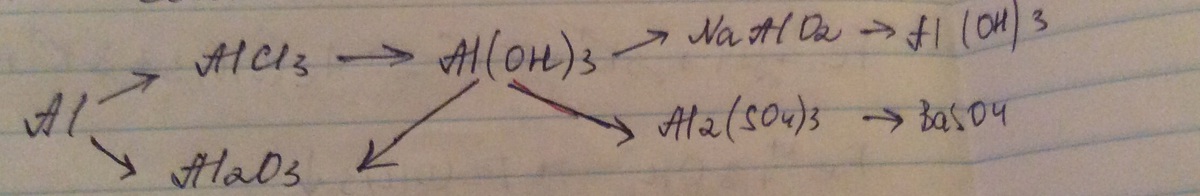 AlCl3 → Al(OH)3 → NaAlO2 → Al(OH)3
Al
Al2(SO4)3 → BaSO4
Al2O3